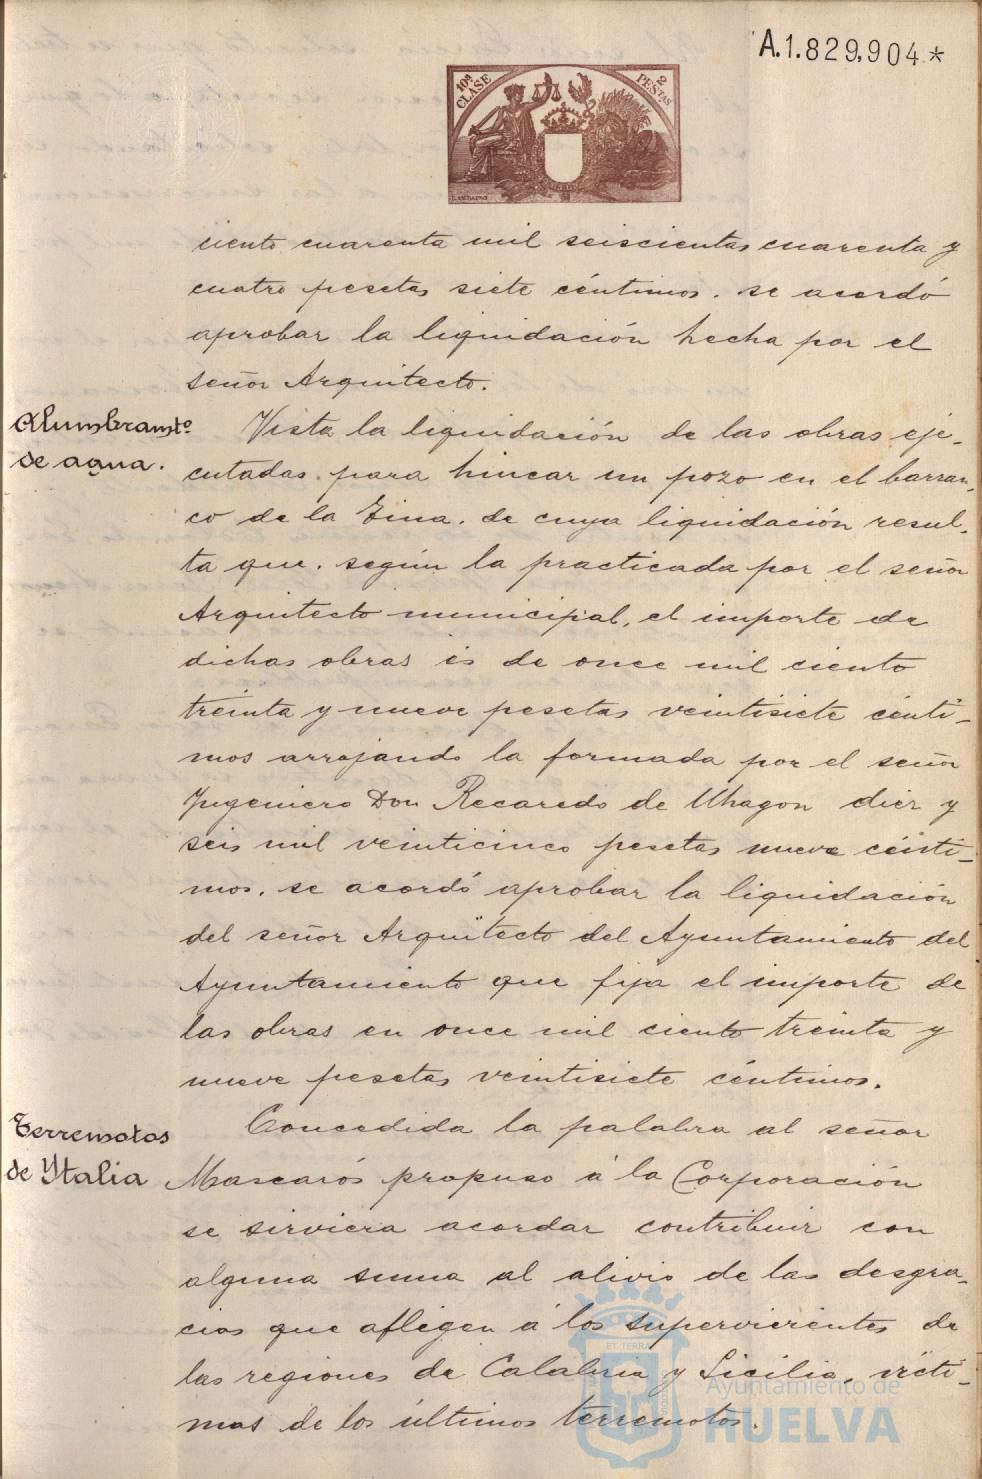 A.1.829,904*
10ª CLASE
2 PESTAS
ciento cuarenta mil seiscientas cuarenta y
cuatro pesetas siete céntimos. se acordó
aprobar la liquidación hecha por el
señor Arquitecto.
Alumbramtº
de agua.
Vista la liquidación de las obras eje-
cutadas. para hincar un pozo en el barran-
co de la Tina. de cuya liquidación resul-
ta que. según la practicada por el señor
Arquitecto municipal, el importe de
dichas obras es de once mil ciento
treinta y nueve pesetas veintisiete cénti-
mos arrojando la formada por el señor
Ingeniero Don Recaredo de Uhagon diez y
seis mil veinticinco pesetas nueve cénti-
mos. se acordó aprobar la liquidación
del señor Arquitecto del Ayuntamiento del
Ayuntamiento que fija el importe de
las obras en once mil ciento treinta y
nueve pesetas veintisiete céntimos.
Terremotos
de Ytalia
Concedida la palabra al señor
Mascarós propuso á la Corporación
se sirviera acordar contribuir con
alguna suma al alivio de las desgra-
cias que afligen á los supervivientes de
las regiones de Calabria y Sicilia, vícti-
mas de los últimos terremotos.
Ayuntamiento de
HUELVA